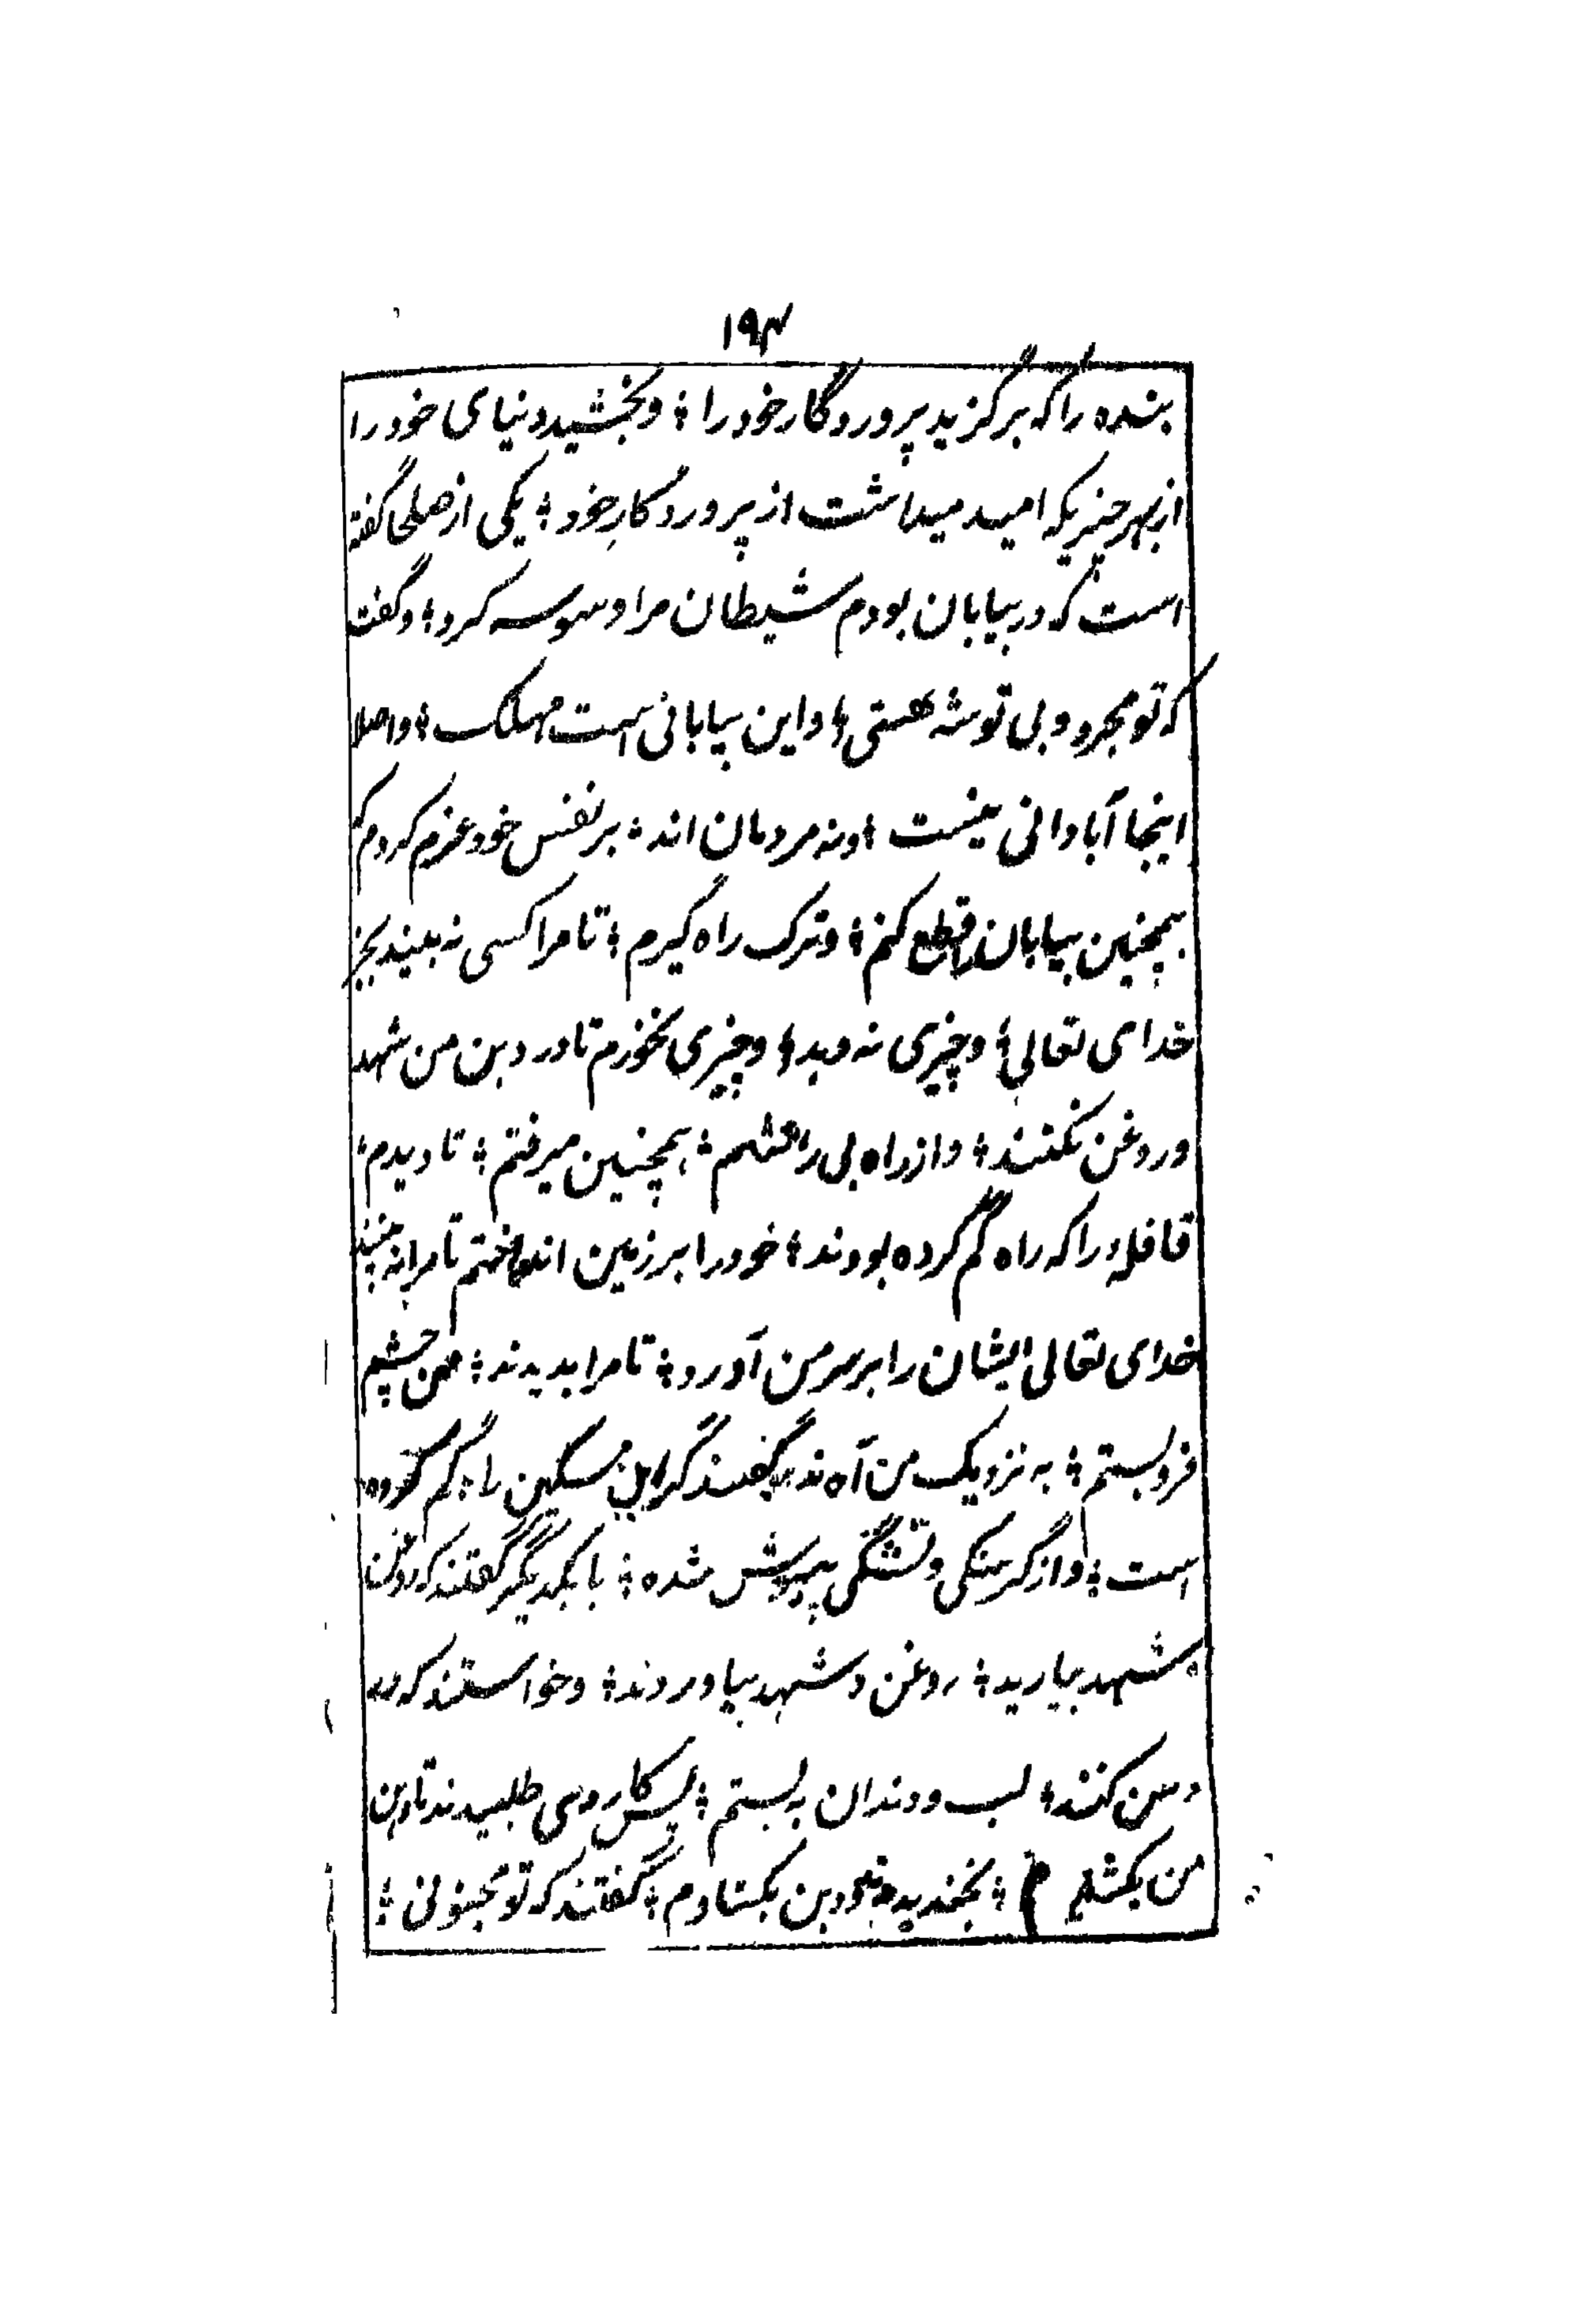 ۱۹۴
بنده را که برگزید پروردگار خود را ؛ و بخشید دنیای خود را
از بهر چیزیکه امید میداشت از پروردگارِ خود ؛ یکی از صلحا گفته
است که در بیابان بودم شیطان مرا وسوسه کرد ؛ و گفت
که تو مجرد و بی توشه هستی ؛ و این بیابانی است مهلک ؛ و اصلا
اینجا آبادانی نیست ؛ و نه مردمان اند ؛ بر نفس خود عزم کردم که
همچنین بیابان را قطع کنم ؛ و ترک راه گیرم ؛ تا مرا کسی نه بیند بجز
خدای تعالی ؛ و چیزی نه دهد ؛ و چیزی نخورم تا در دهن من شهد
و روغن نکنند ؛ و از راه بی راه شدم ؛ همچنین میرفتم ؛ تا دیدم ؛
قافله را که راه گم کرده بودند ؛ خود را بر زمین انداختم تا مرا نه بینند
خدای تعالی ایشان را بر سر من آورد ؛ تا مرا بدیدند ؛ من چشم
فرو بستم ؛ به نزدیک من آمدند گفتند که این مسکین راه گم کرده
است ؛ و از گرسنگی و تشنگی بیهوش شده ؛ با یکدیگر گفتند که روغن
شهد بیارید ؛ روغن و شهد بیاوردند ؛ و خواستند که در
دهن کنند ؛ لب و دندان به بستم ؛ پس کاردی طلبیدند تا دهن
من بکشایند ؛ بخندیدم و دهن بکشادم ؛ گفتند که تو مجنونی ؛